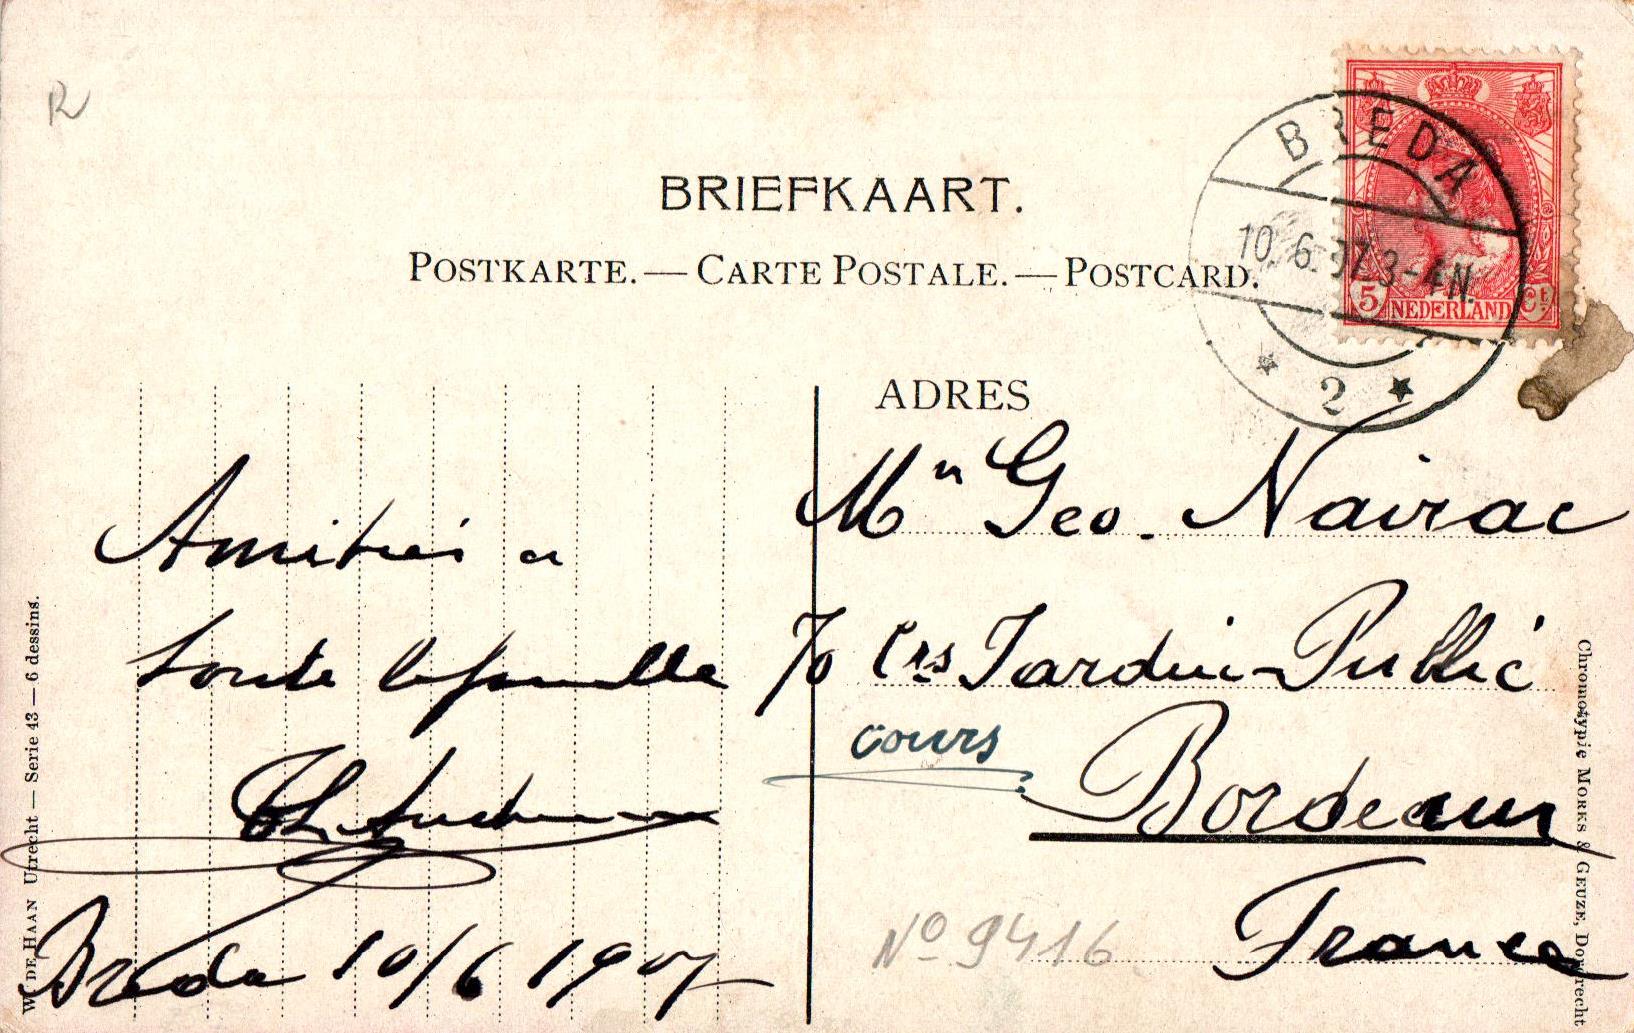 R
BRIEFKAART.
POSTKARTE. — CARTE POSTALE. — POSTCARD.
BREDA
10.6.07 3-4N.
2
5 NEDERLAND Ct
ADRES
Mr Geo. Nairac
70 Crs Jardin-Public
cours
Bordeaux
France
No 9416
Amitiés a
toute la famille
Breda 10/6 1907
W. DE HAAN Utrecht — Serie 43 — 6 dessins.
Chromotypie MORKS & GEUZE, Dordrecht